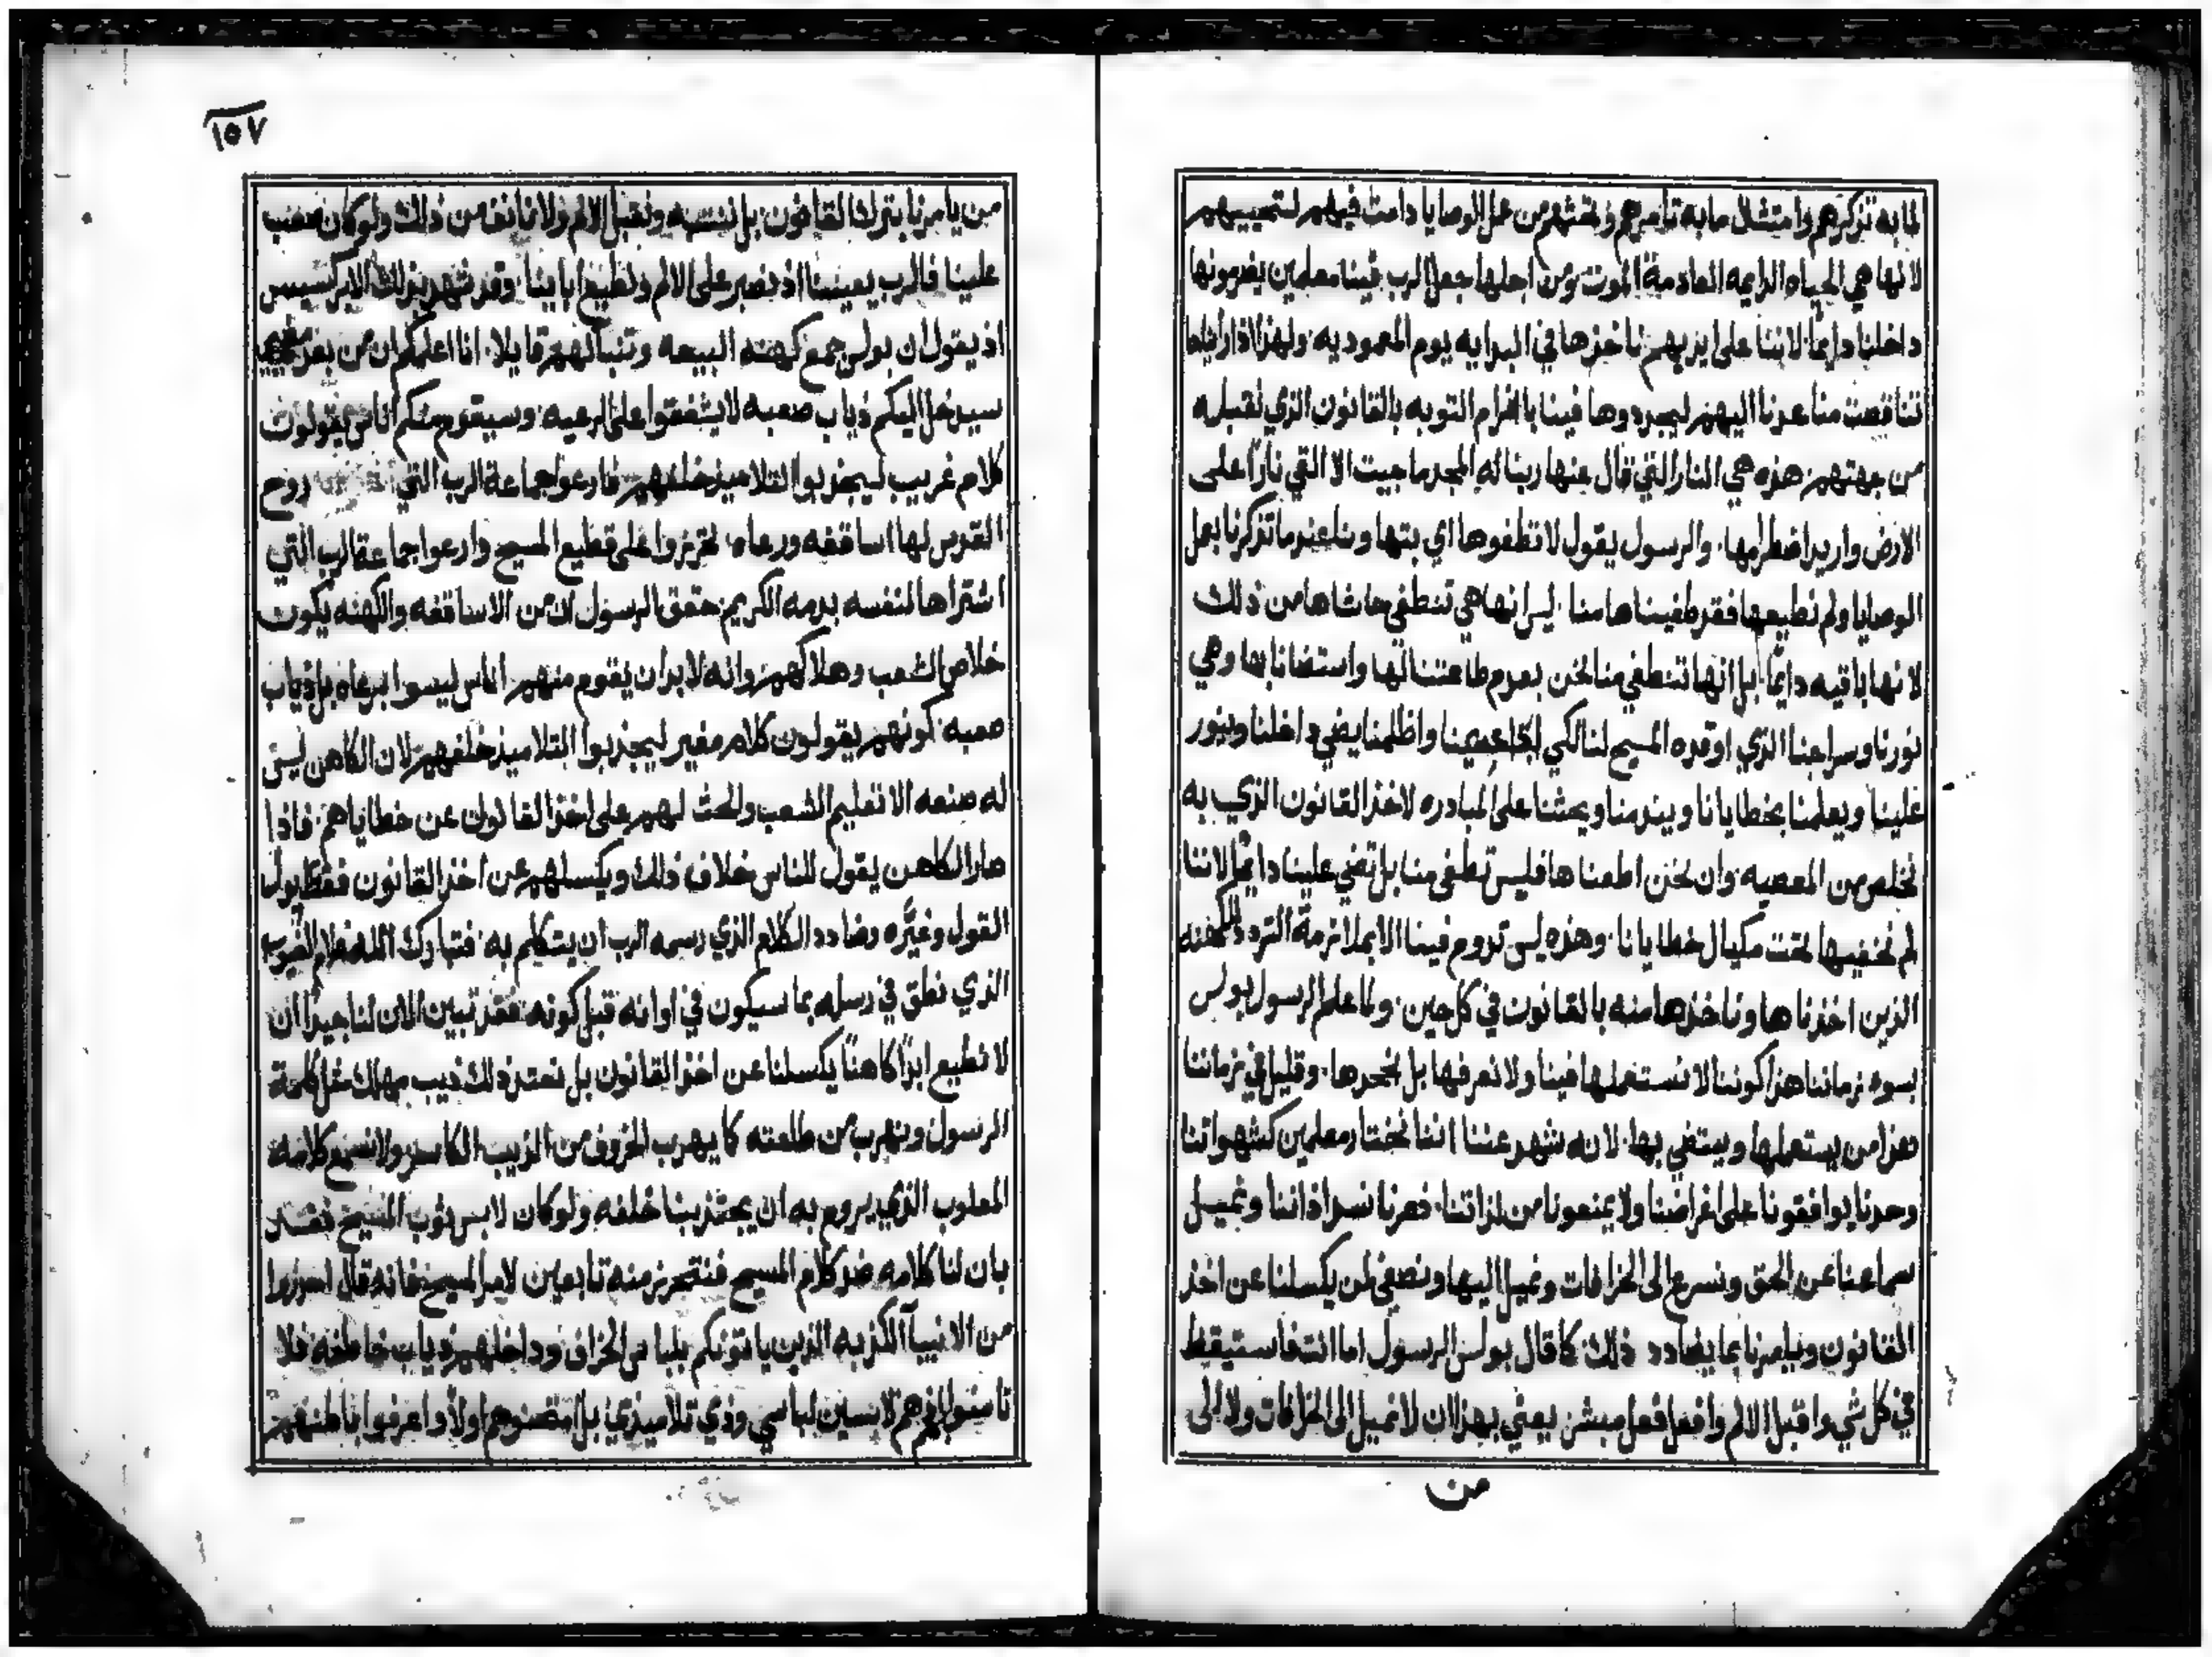 لما به تذكرهم وامتثال ما به تأمرهم وتحثهم من عمل الوصايا دامت فيهم لتحييهم
لانها هي الحياه الدايمه العادمة الموت ومن اجلها جعل الرب فينا معلمين يضرمونها
داخلنا دايمًا لاننا على ايديهم ناخذها في البدايه يوم المعموديه ولهذا اذا رايناها
تناقصت منا عدنا اليهم ليجددوها فينا باضرام التوبه بالقانون الذي نقبله
من جهتهم هذه هي النار التي قال عنها ربنا له المجد ما جيت الا القي نارًا على
الارض واريد اضطرامها والرسول يقول لا تطفوها اي بتها وعندما تذكرنا بعمل
الوصايا ولم نطيعها فقد طفيناها منا ليس انها هي تنطفي حاشاها من ذلك
لانها باقيه دايمًا بل انها تنطفي منا نحن بعدم طاعتنا لها واستضانا بها وهي
نورنا وسراجنا الذي اوقده المسيح لنا لكي يضي داخلنا وينور
علينا ويعلمنا بخطايانا ويندمنا ويحثنا على المبادره لاخذ القانون الذي به
نخلص من المعصيه وان نحن اطعناها فليس تطفى منا بل تضي علينا دايمًا لاننا
لم نخفيها تحت مكيال خطايانا وهذه ليس تدوم فينا الا بملازمة التردد للكهنه
الذين اخذناها وناخذها منه بالقانون في كل حين ولما علم الرسول بولس
بسوء زماننا هذا كوننا لا نستعملها فينا ولا نعرفها بل نجحدها وقليل في زماننا
هذا من يستعملها ويستضي بها لانه شهد عننا اننا نختار معلمين كشهواتنا
وحدنا يوافقونا على اغراضنا ولا يمنعونا من لذاتنا فصرنا نسد اذاننا ونميل
سماعنا عن الحق ونسرع الى الخرافات ونميل اليها ونصغي لمن يكسلنا عن اخذ
القانون ويامرنا بما يضادد ذلك كما قال بولس الرسول اما انت فاستيقظ
في كل شي واقبل الالم وافعل فعل مبشر يعني بهذا ان لا نميل الى الخرافات ولا الى
من
١٥٧
من يامرنا بترك القانون بل ننتبه ونقبل الالم ولا نانف من ذلك ولو كان صعب
علينا فالرب يعيننا اذ نصبر على الالم ونطيع ابائنا وقد شهد بذلك الابركسيس
اذ يقول ان بولس جمع كهنه البيعه وتنبا لهم قايلا انا اعلمكم ان من بعد
سيدخل اليكم ذياب صعبه لا يشفقوا على الرعيه وسيقوم منكم اناس يقولون
كلام غريب ليجذبوا التلاميذ خلفهم فارعوا جماعة الرب التي روح
القدس لها اساقفه ورعاه تحرزوا على قطيع المسيح وارعوا جماعة الرب التي
اشتراها لنفسه بدمه الكريم حقق الرسول ان من الاساقفه والكهنه يكون
خلاص الشعب وهلاكهم وانه لا بد ان يقوم منهم اناس ليسوا برعاه بل ذياب
صعبه كونهم يقولون كلام مغير ليجذبوا التلاميذ خلفهم لان الكاهن ليس
له صنعه الا تعليم الشعب والحث لهم على اخذ القانون عن خطاياهم فاذا
صار الكاهن يقول للناس خلاف ذلك ويكسلهم عن اخذ القانون فقد بدل
القول وغيَّره وضادد الكلام الذي رسمه الرب ان يتكلم به فتبارك الله علام الغيوب
الذي نطق في رسله بما سيكون في اوانه قبل كونه فقد تبين الان لنا جيدًا ان
لا نطيع ابدًا كاهنًا يكسلنا عن اخذ القانون بل نعتد ذلك ذيب مهلك مثل كلمة
الرسول ونهرب من طلعته كما يهرب الخروف من الذيب الكاسر ولا نسمع كلامه
المعلوب الذي يروم به ان يجتذبنا خلفه ولو كان لابس ثوب المسيح فقد
بان لنا كلامه ضد كلام المسيح فنتحرز منه تابعين لامر المسيح فانه قال احذروا
من الانبيآ الكذبه الذين ياتونكم بلباس الخراف وداخلهم ذياب خاطفه فلا
تامنوا لهم لابسين لباسي وزي تلاميذي بل امتحنوهم اولاً واعرفوا باطنهم